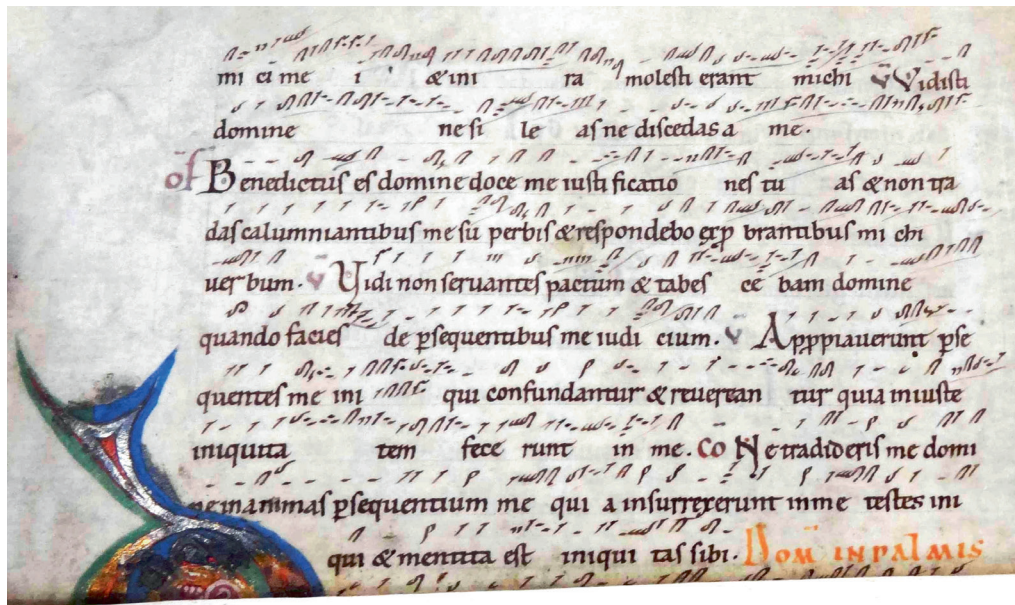 mi ci me i & ini ra molesti erant michi V Vidisti
domine ne si le as ne discedas a me.
of Benedictus es domine doce me iusti ficatio nes tu as & non tra
das calumniantibus me su perbis & respondebo exp brantibus mi chi
uer bum. V Vidi non seruantes pactum & tabes ce bam domine
quando facies de psequentibus me iudi cium. V Appropiauerunt pse
quentes me ini qui confundantur & reuerean tur quia iniuste
iniquita tem fece runt in me. CO Ne tradideris me domi
ne in animas psequentium me qui a insurrexerunt in me testes ini
qui & mentita est iniqui tas sibi. Dom in palmis